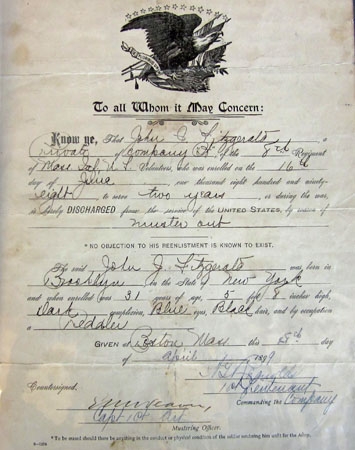 To all Whom it May Concern:
Know ye, That John J. Fitzgerald a
Private of Company of the 8th Regiment
of Mass Inf. U.S. Volunteers, who was enrolled on the 16th
day of June one thousand eight hundred and ninety-
eight to serve two years, or during the war,
is hereby DISCHARGED from the service of the UNITED STATES, by reason of
muster out
*NO OBJECTION TO HIS REENLISTMENT IS KNOWN TO EXIST.
The said John J. Fitzgerald was born in
Brooklyn in the State of New York
and when enrolled was 31 years of age, 5 feet 8 inches high,
Dark complexion, Blue eyes, Black hair, and by occupation
a Peddler
GIVEN at Boston Mass this day
of April 1899
1st Lieutenant
Commanding the Company
Countersigned.
Capt 1st Art
Mustering Officer.
*To be erased should there be anything in the conduct or physical condition of the soldier rendering him unfit for the Army.